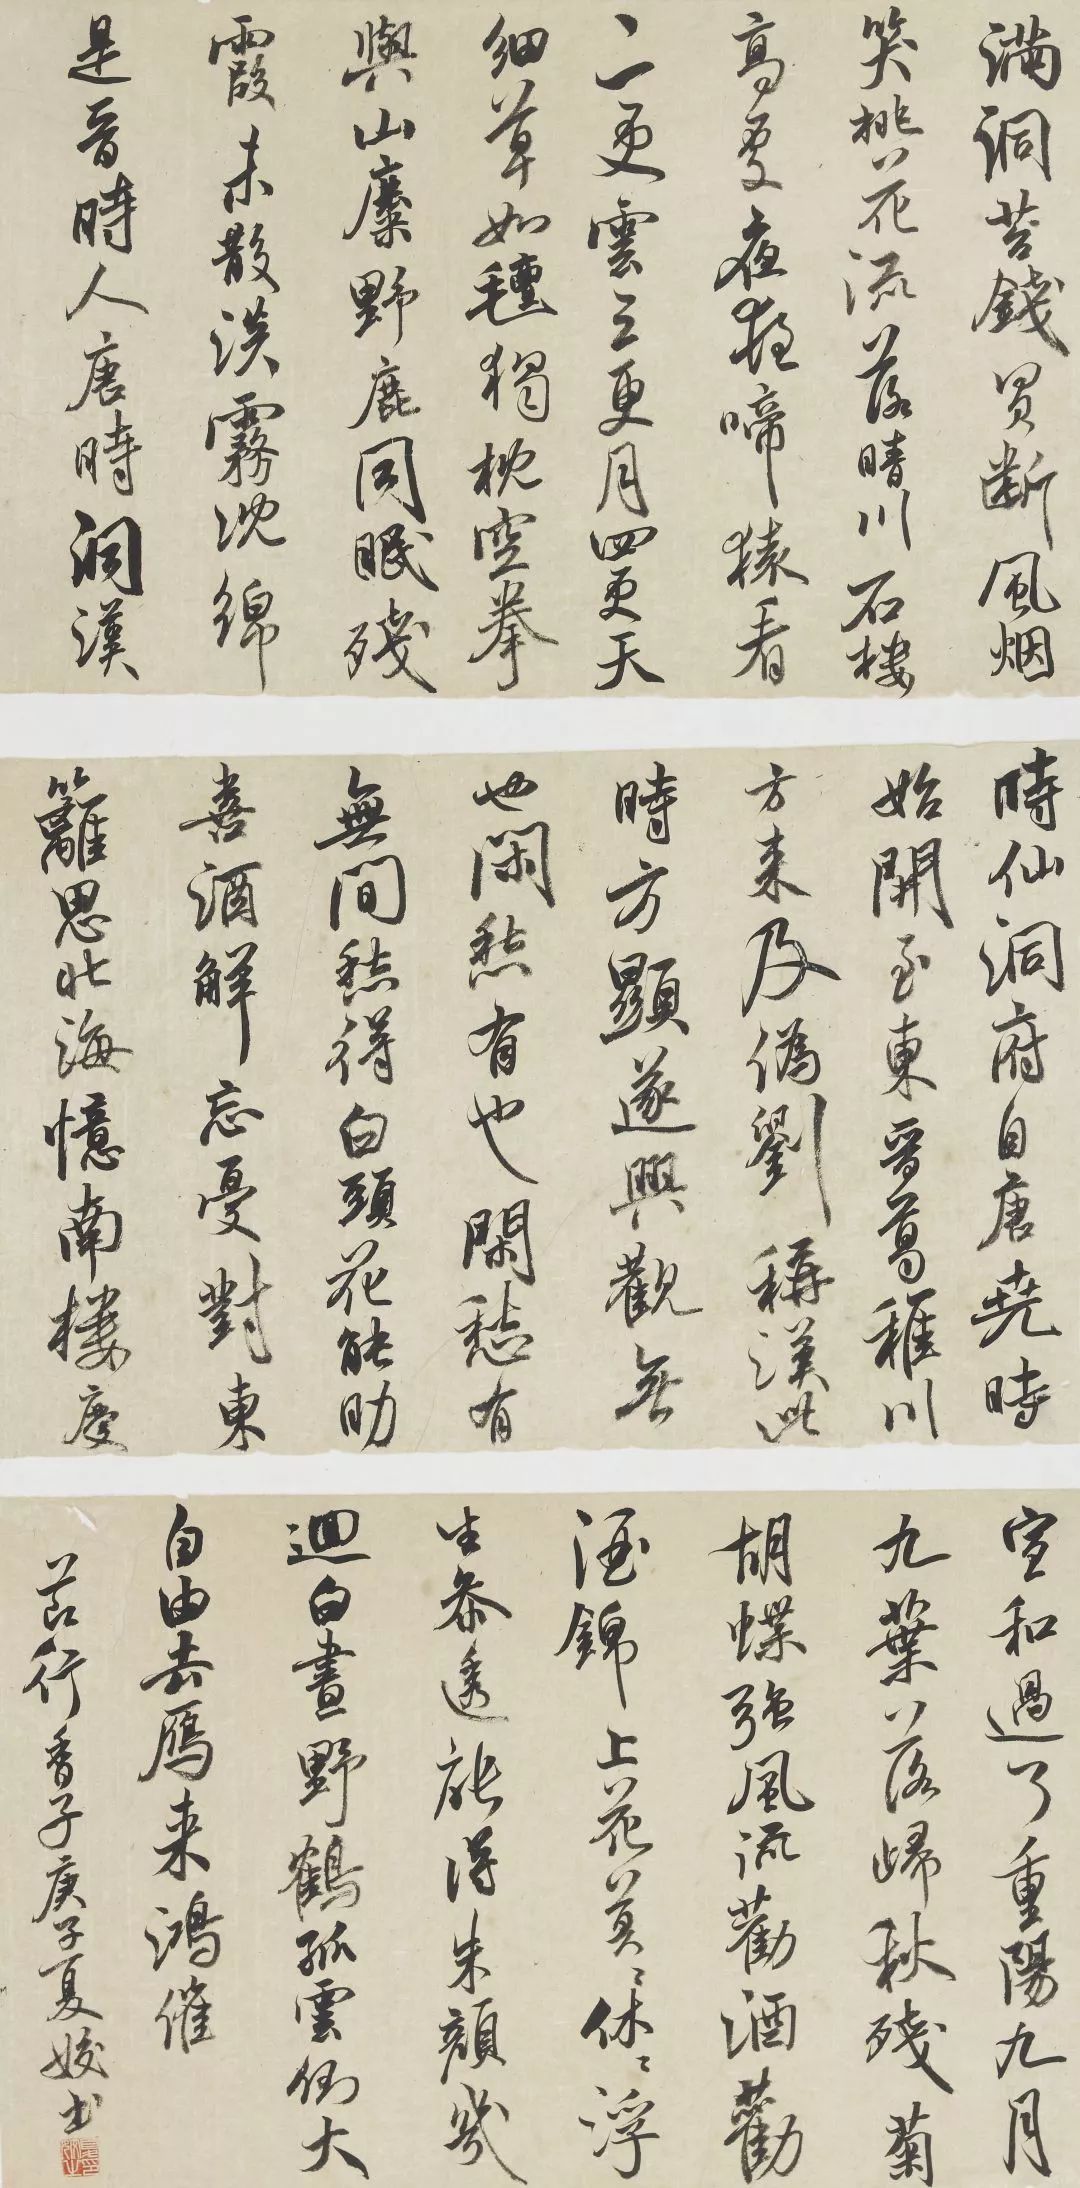 满洞苔錢買断風烟
笑桃花流落晴川石楼
高處夜摧啼猿看
二更雲三更月四更天
细草如氊獨枕空拳
與山麋野鹿同眠殘
霞未散淡霧沈綿
是晉時人唐時洞漢
時仙洞府自唐尭時
始開至東晋葛稚川
方来及偽劉稱漢此
時方顯遂興觀無
也閑愁有也閑愁有
無間愁得白頭花能助
喜酒解忘憂對東
籬思北海憶南楼慶
宣和過了重陽九月
九葉落歸秋殘菊
胡蝶強風流勸酒勸
酒錦上花莫〻休〻浮
生参透能得朱顔幾
迴白晝野鶴孤雲倒大
自由去鴈来鴻催
苡行香子庚子夏姣书